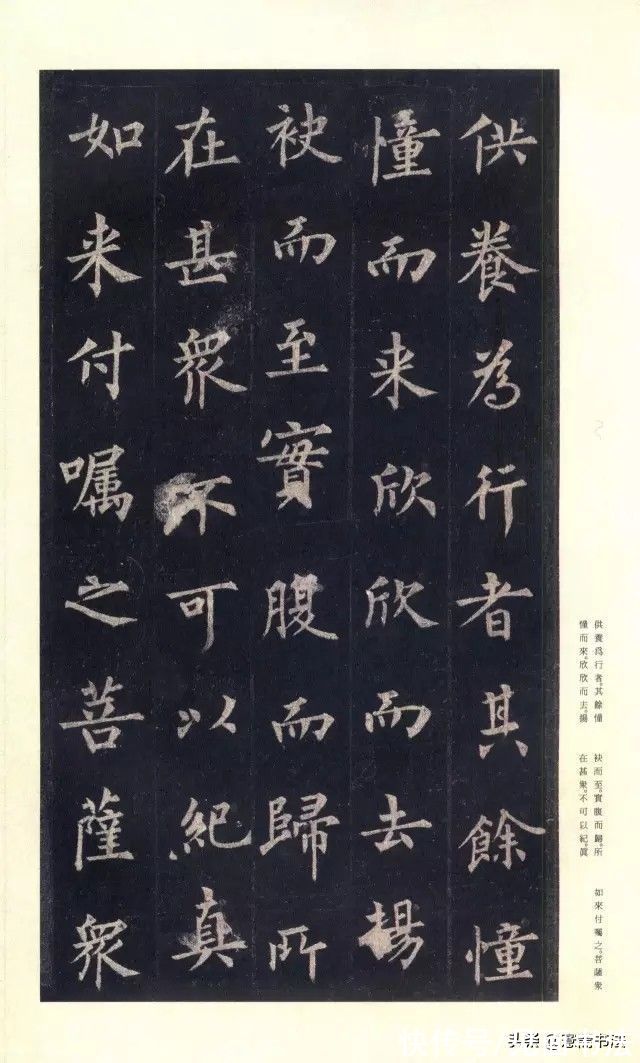 供養為行者其餘憧
憧而来欣欣而去揚
袂而至實腹而歸所
在甚衆不可以紀真
如来付嘱之菩薩衆
供養爲行者。其餘憧
憧而來。欣欣而去。揚
袂而至。實腹而歸。所
在甚衆。不可以紀。眞
如來付囑之。菩薩衆